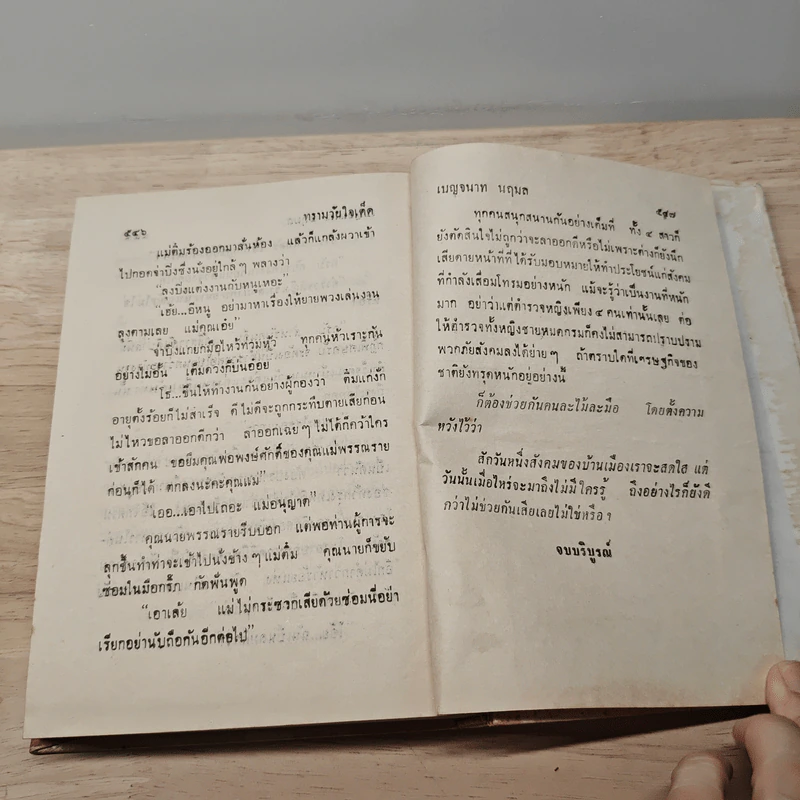 ๕๔๖ ทรามวัยใจเด็ด
แม่ติ๋มร้องออกมาลั่นห้อง แล้วก็แกล้งผวาเข้า
ไปกอดจ่าบึ่งซึ่งนั่งอยู่ใกล้ๆ พลางว่า
“ลุงบึ่งแต่งงานกับหนูเหอะ”
“เฮ้ย...อีหนู อย่ามาหาเรื่องให้ยายพวงเล่นงาน
ลุงตามเลย แม่คุณเอ๊ย”
จ่าบึ่งแกยกมือไหว้ท่วมหัว ทุกคนหัวเราะกัน
อย่างไม่อั้น เต็มดวงก็บ่นอ้อย
“โธ่...ขืนให้ทำงานกันอย่างผู้กองว่า ติ๋มแก่งั่ก
อายุตั้งร้อยก็ไม่สำเร็จ ดีไม่ดีจะถูกกระทืบตายเสียก่อน
ไม่ไหวขอลาออกดีกว่า ลาออกเฉยๆ ไม่ได้ก็คว้าใคร
เข้าสักคน ขอยืมคุณพ่อพงษ์ศักดิ์ของคุณแม่พรรณราย
ก่อนก็ได้ ตกลงนะคะคุณแม่”
“เออ...เอาไปเถอะ แม่อนุญาต”
คุณนายพรรณรายรีบบอก แต่พอท่านผู้การจะ
ลุกขึ้นทำท่าจะเข้าไปนั่งข้างๆ แม่ติ๋ม คุณนายก็ขยับ
ซ่อมในมือกรึ๊ก กัดฟันพูด
“เอาเล้ย แม่ไม่กระซวกเสียด้วยซ่อมนี่อย่า
เรียกอย่านับถือกันอีกต่อไป”
เบญจนาท นฤมล ๕๔๗
ทุกคนสนุกสนานกันอย่างเต็มที่ ทั้ง ๔ สาวก็
ยังตัดสินใจไม่ถูกว่าจะลาออกดีหรือไม่เพราะต่างก็ยังนึก
เสียดายหน้าที่ที่ได้รับมอบหมายให้ทำประโยชน์แก่สังคม
ที่กำลังเสื่อมโทรมอย่างหนัก แม้จะรู้ว่าเป็นงานที่หนัก
มาก อย่าว่าแต่ตำรวจหญิงเพียง ๔ คนเท่านั้นเลย ต่อ
ให้ตำรวจทั้งหญิงชายหมดกรมก็คงไม่สามารถปราบปราม
พวกภัยสังคมลงได้ง่ายๆ ถ้าตราบใดที่เศรษฐกิจของ
ชาติยังทรุดหนักอยู่อย่างนี้
ก็ต้องช่วยกันคนละไม้ละมือ โดยตั้งความ
หวังไว้ว่า
สักวันหนึ่งสังคมของบ้านเมืองเราจะสดใส แต่
วันนั้นเมื่อไหร่จะมาถึงไม่มีใครรู้ ถึงอย่างไรก็ยังดี
กว่าไม่ช่วยกันเสียเลยไม่ใช่หรือ ?
จบบริบูรณ์